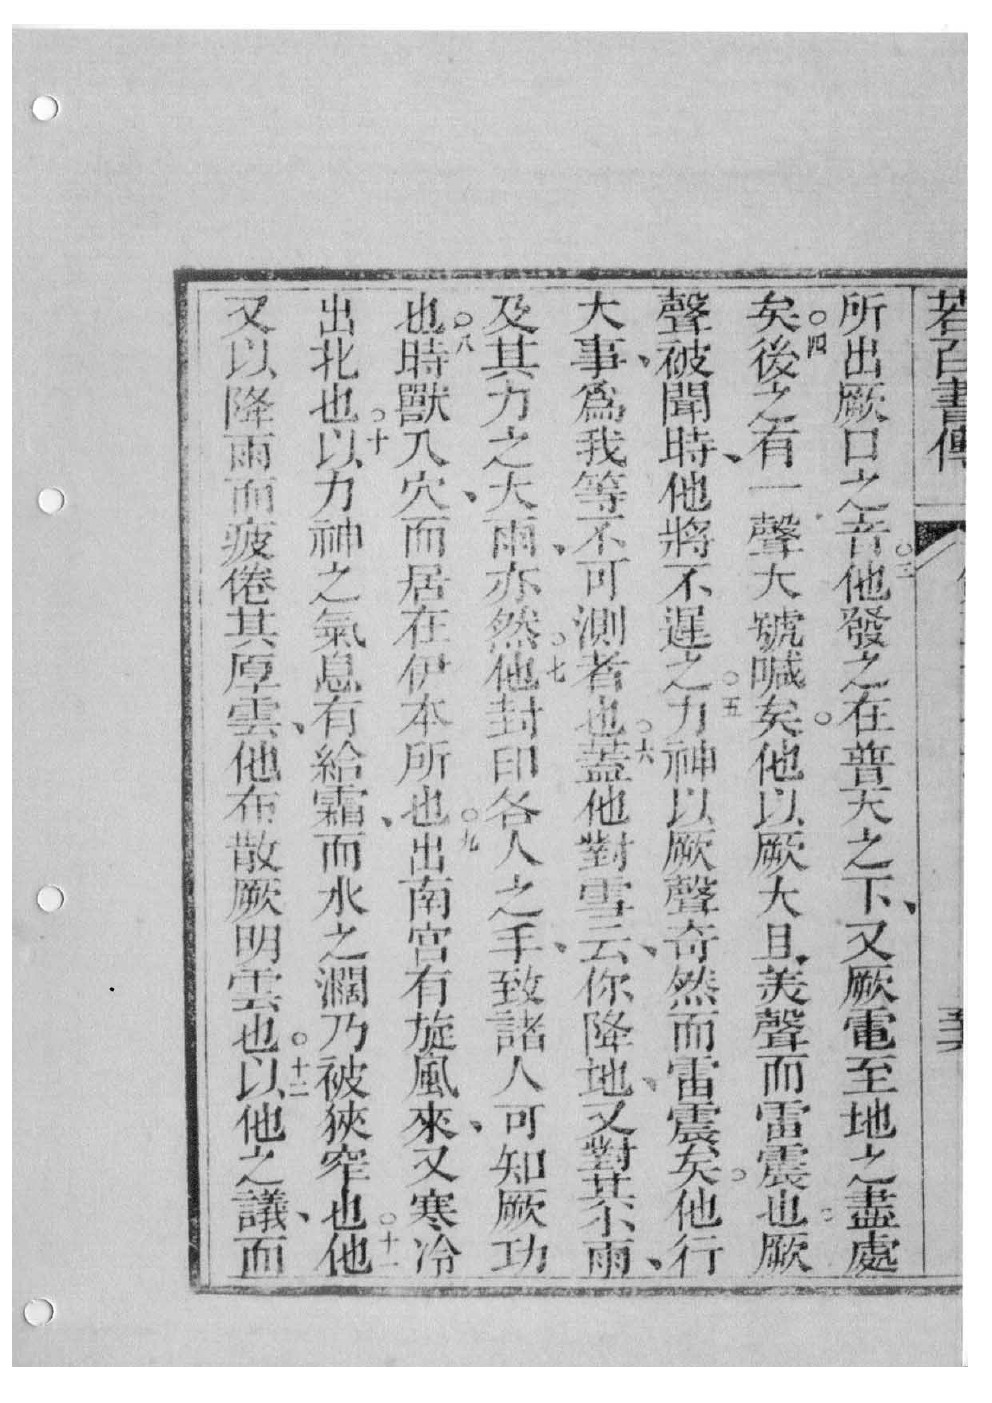 若百書傳
所出厥口之音○三他發之在普天之下、又厥電至地之盡處
矣○四後之有一聲大號喊矣○他以厥大且美聲而雷震也○厥
聲被聞時、他將不遲之○五力神以厥聲奇然而雷震矣○他行
大事、爲我等不可測者也○六蓋他對雪云、你降地、又對其小雨、
及其力之大雨、亦然○七他封印各人之手、致諸人可知厥功
也○八時獸入穴、而居在伊本所也○九出南宮有旋風來、又寒冷
出北也○十以力神之氣息有給霜、而水之濶乃被狹窄也○十一他
又以降雨而疲倦其厚雲、他布散厥明雲也○十二以他之議、而